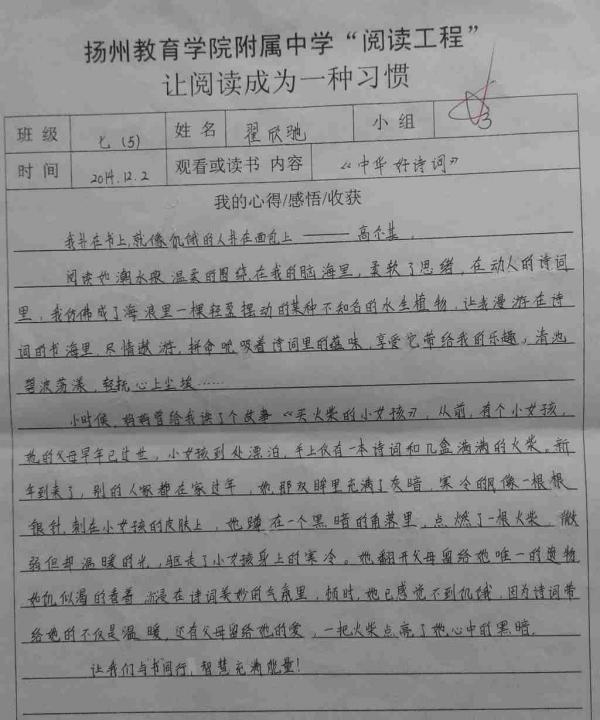 扬州教育学院附属中学“阅读工程”
让阅读成为一种习惯
班 级 七 (5) 姓 名 翟欣驰 小 组 3
时 间 2014.12.2 观看或读书 内容 《中华好诗词》
我的心得/感悟/收获
我扑在书上,就像饥饿的人扑在面包上 ——— 高尔基.
阅读如潮水般温柔的围绕在我的脑海里,柔软了思绪,在动人的诗词
里,我仿佛成了海浪里一棵轻盈摆动的某种不知名的水生植物,让我漫游在诗
词的书海里,尽情遨游,拼命吮吸着诗词里的蕴味,享受它带给我的乐趣,清池
碧波荡漾,轻抚心上尘埃……
小时候,妈妈曾给我读了个故事《买火柴的小女孩》,从前,有个小女孩,
她的父母早年已过世,小女孩到处漂泊,手上仅有一本诗词和几盒满满的火柴,新
年到来了,别的人家都在家过年,她那双眸里充满了灰暗,寒冷的风像一根根
银针,刺在小女孩的皮肤上,她蹲在一个黑暗的角落里,点燃了一根火柴,微
弱但却温暖的光,驱走了小女孩身上的寒冷。她翻开父母留给她唯一的遗物
她饥似渴的看着,沉浸在诗词美妙的气氛里,顿时,她已感觉不到饥饿,因为诗词带
给她的不仅是温暖,还有父母留给她的爱,一把火柴点亮了她心中的黑暗.
让我们与书同行,智慧充满能量!